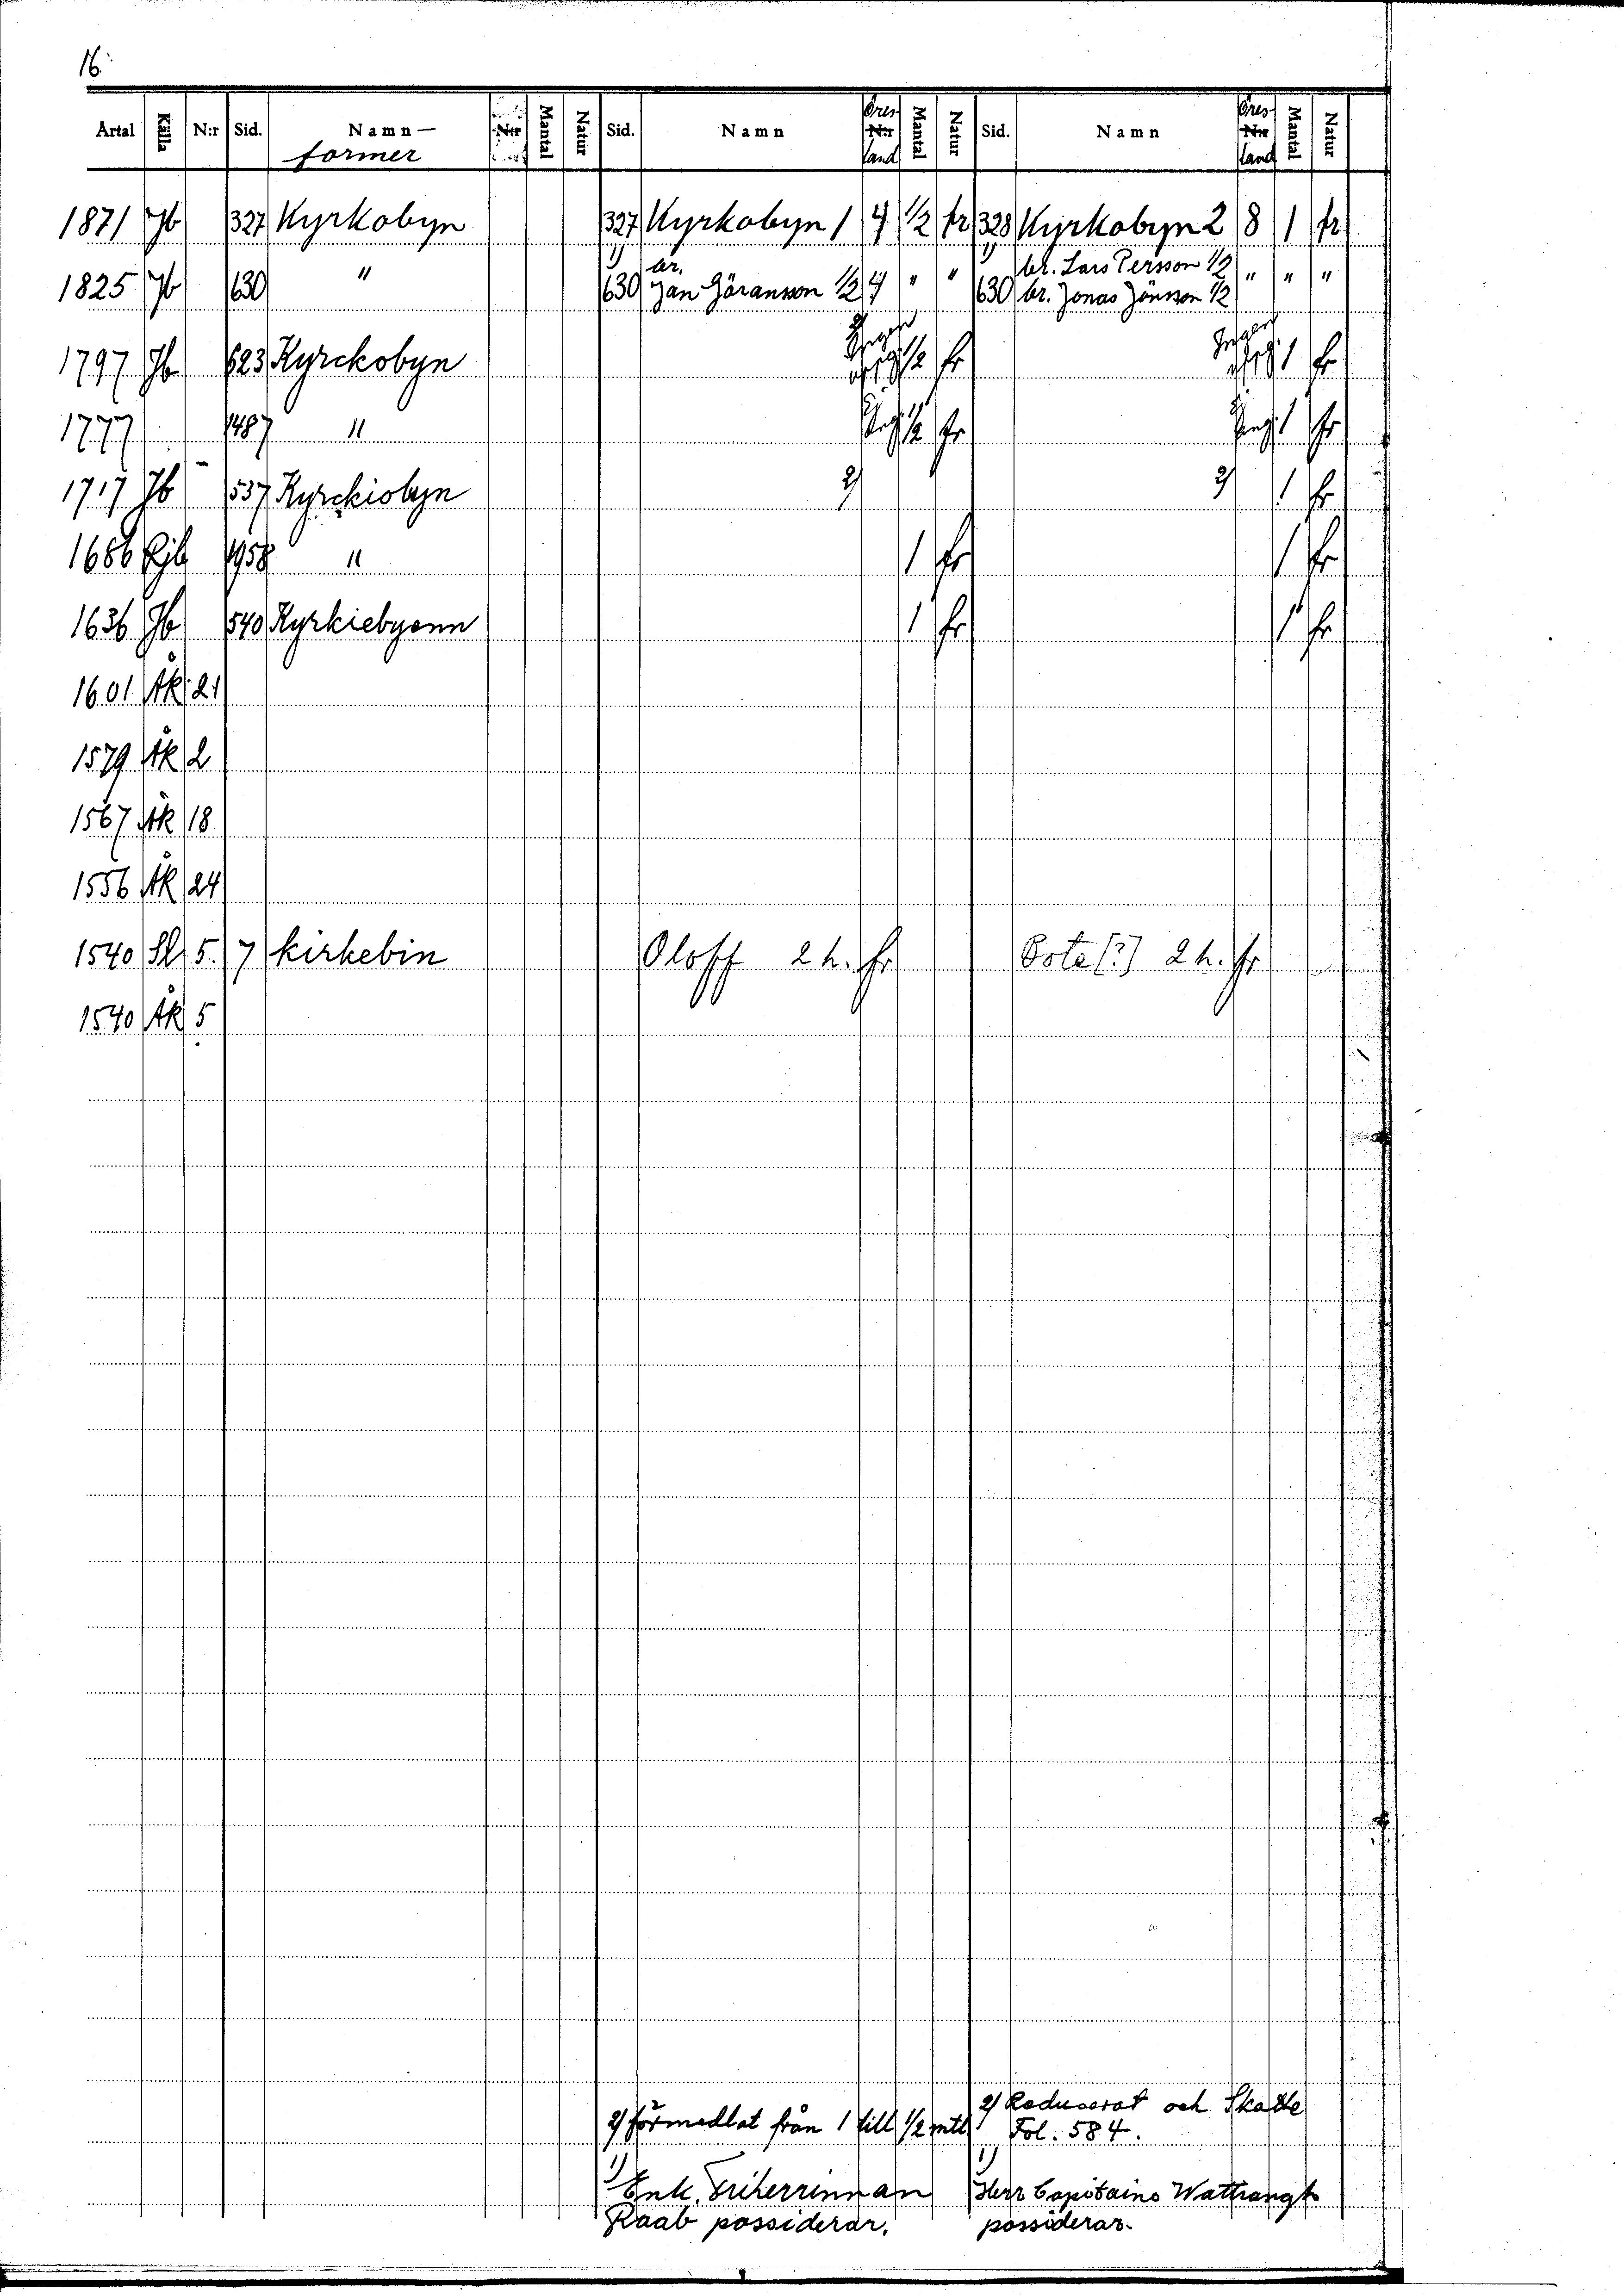 16
Årtal Källa N:r Sid. Namn— Mantal Natur Sid. Namn Öres- N:r Mantal Natur Sid. Namn Öres- N:r Mantal Natur
former land land
1871 Jb 327 Kyrkobyn 327 Kyrkobyn 1 4 1/2 fr 328 Kyrkobyn 2 8 1 fr
1) br. 1) br. Lars Persson 1/2
1825 Jb 630 " 630 Jan Göransson 1/2 4 " " 630 br. Jonas Jönsson 1/2 " " "
1797 Jb 623 Kyrckobyn 1/2 fr 1 fr
1777 1487 " 1/2 fr 1 fr
1717 Jb 537 Kyrckiobyn 2) 2) 1 fr
1686 1958 " 1 fr 1 fr
1636 Jb 540 Kyrkiebyenn 1 fr 1 fr
1601 Äk 21
1579 Äk 2
1567 Äk 18
1556 Äk 24
1540 Sl 5. 7 kirkebin Oloff 2 h. fr Oste(?) 2 h. fr
1540 Äk 5
2) förmedlat från 1 till 1/2 mtl
2) Reducerat och Skatte
Fol. 584.
1) Enk. Friherrinnan
Raab possiderar.
1) Herr Capitaine Wattrangh
possiderar.